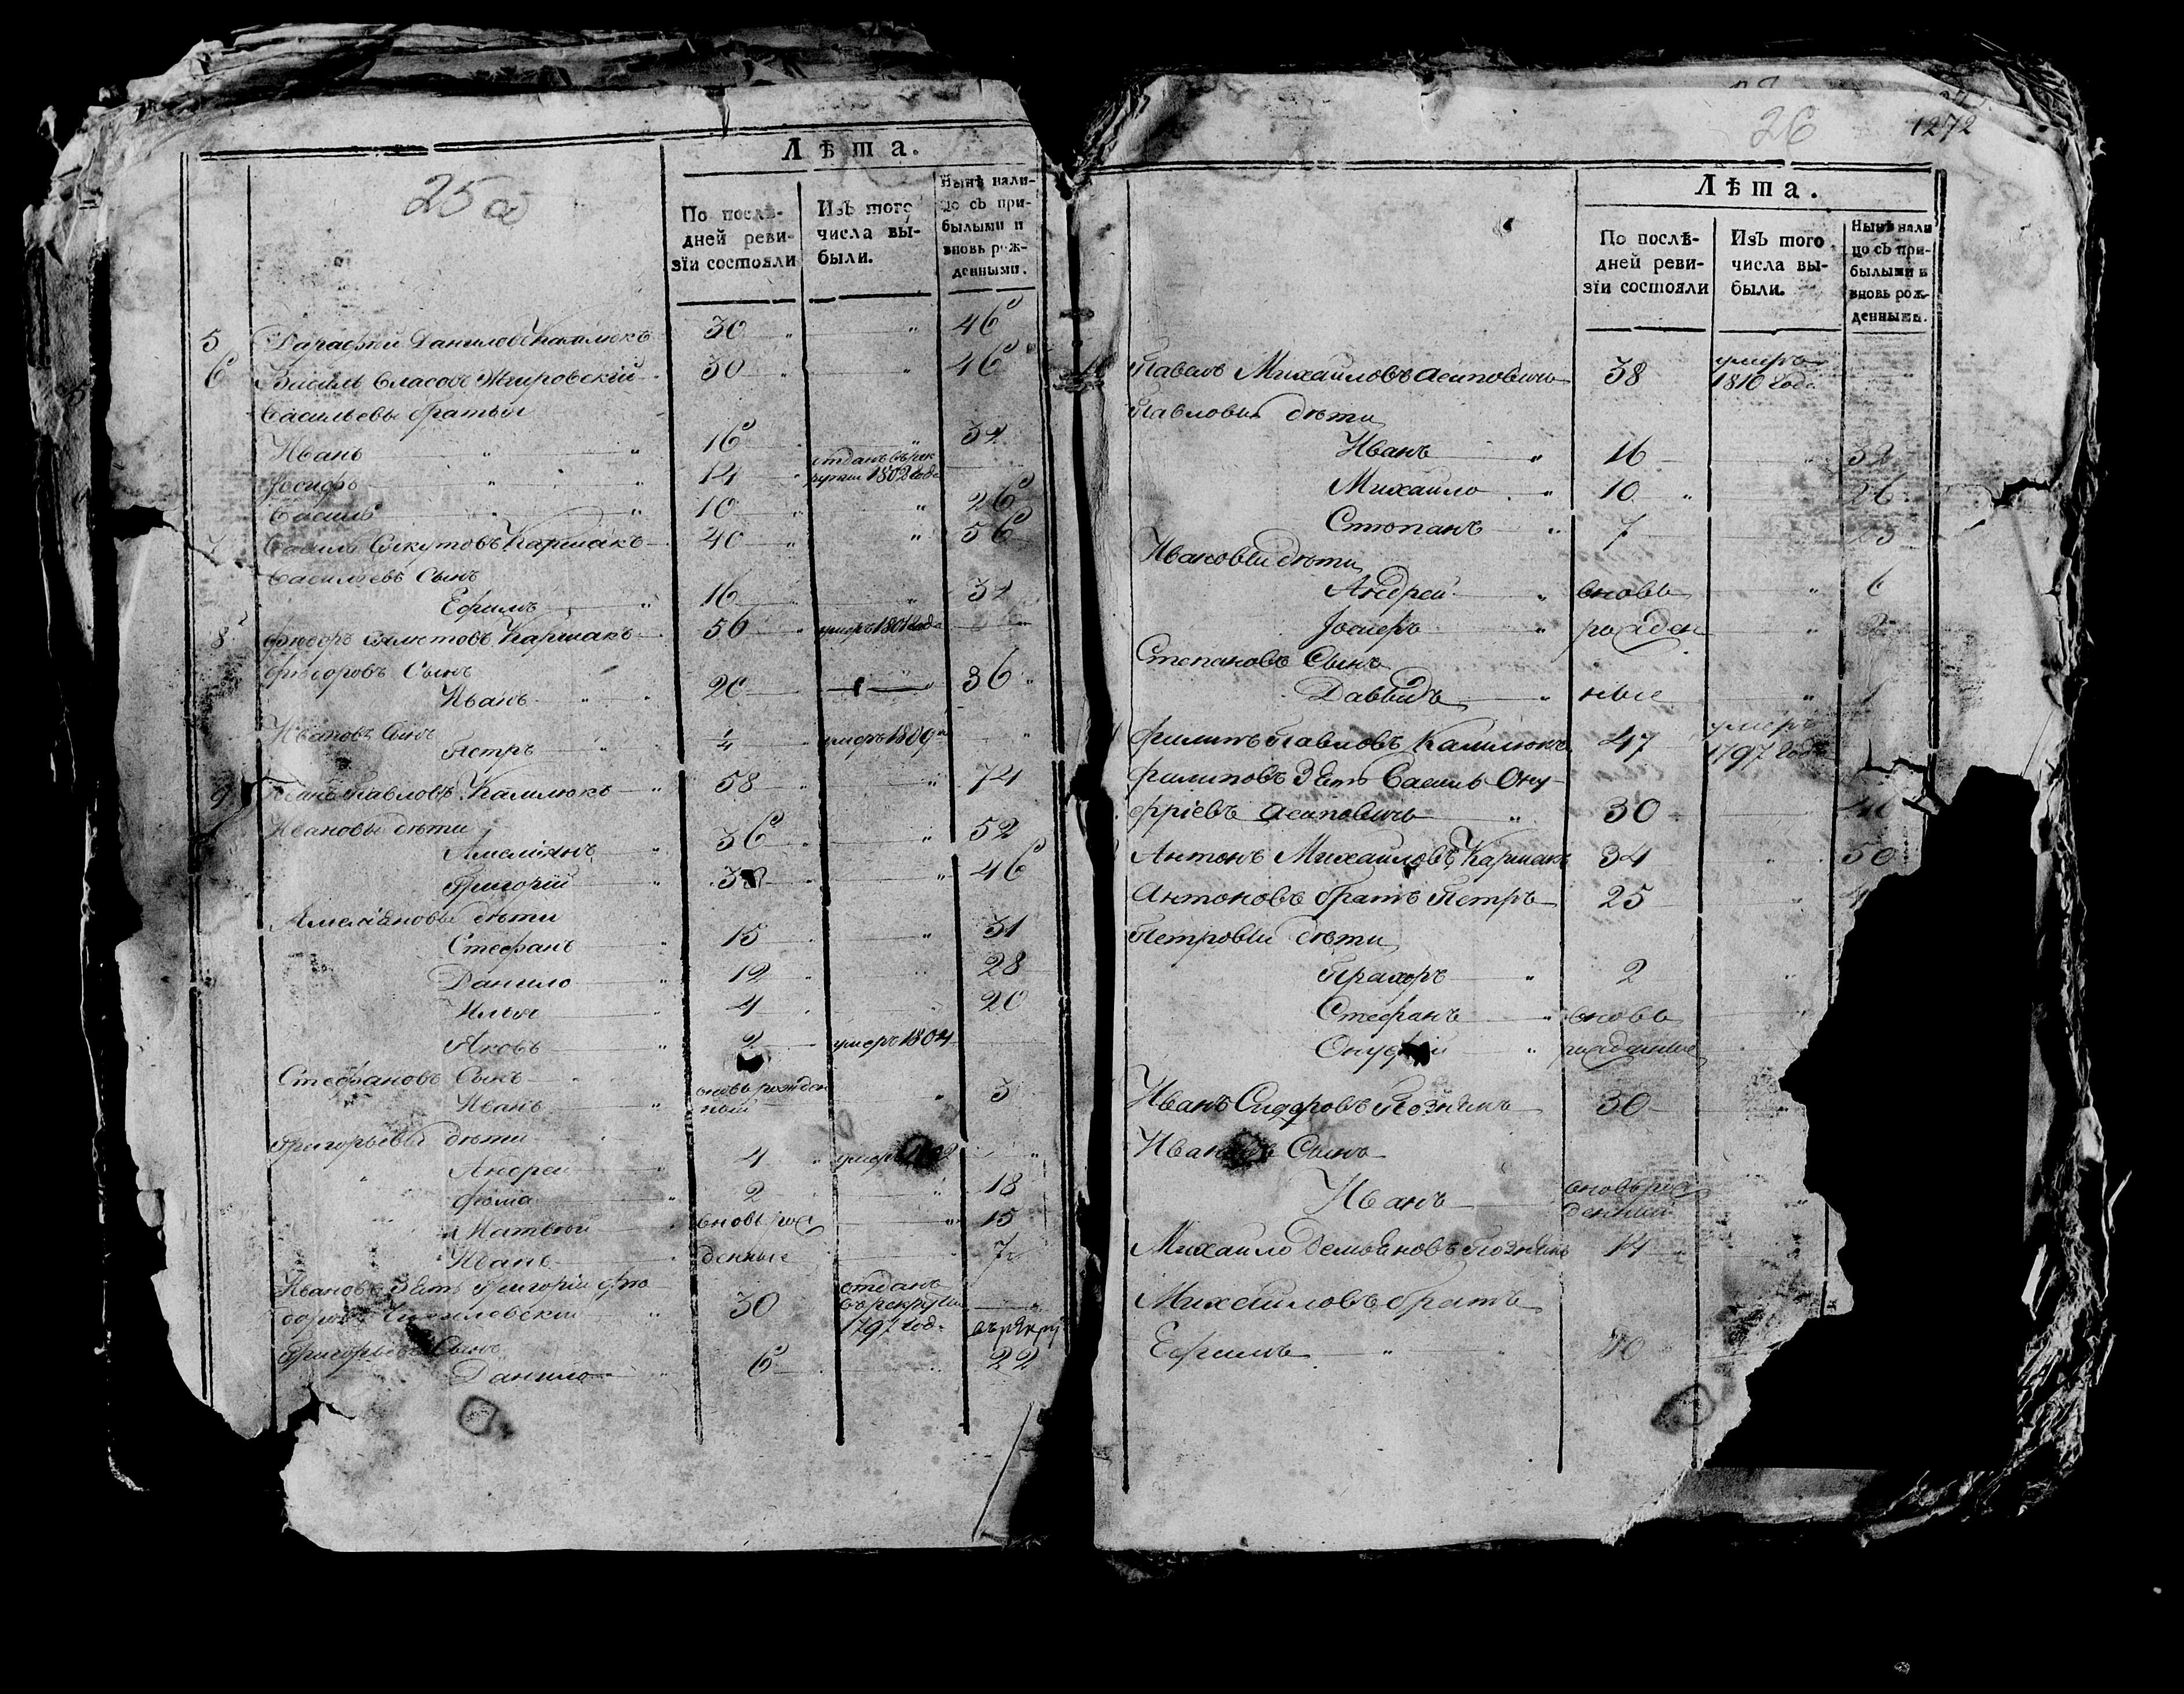 25 об
Лѣта.
По послѣ-
дней реви-
зіи состояли
Изъ того
числа вы-
были.
Нынѣ нали-
цо съ при-
былыми и
вновь рож-
денными.
5 Данилов Камлюкъ 30 " " 46
6 Василь Власовъ Жировскій 30 " " 46
Васильевы братья
Иванъ " " 16 " 32
Іосифъ " " 14 отданъ въ рек
руты 1802 года
Василь " 10 " 26
7 Василь Кармакъ 40 " " 56
Васильевъ Сынъ
Ефимъ " 16 " 32
8 Ѳедоръ Кармакъ 56 " умеръ 1801 года
Сынъ
Иванъ " 20 " 36
Ивановъ Сынъ
Петръ " 1/4 умеръ 1809
9 Иванъ Павловъ Камлюкъ " 58 " " 74
Ивановы дѣти
Амелиянъ " 36 " 52
Григорій " 30 " 46
Амелияновы дѣти
Стефанъ " 15 " 31
Данило " 12 " 28
Илья " 4 " 20
Яковъ " 2 умеръ 1804
Стефановъ Сынъ
Иванъ " вновь рожден
ный " 3
Григорьевы дѣти
Андрей " 4 " умеръ "
Фома " 2 " 18
Матвѣй вновь рож " 15
Иванъ денные 7
Ивановъ Зять Григорій Фѣ
доровъ " 30 отданъ
въ рекруты
1797 год
Григорьевъ Сынъ
Данило 6 22
26
1272
Лѣта.
По послѣ-
дней реви-
зіи состояли
Изъ того
числа вы-
были.
Нынѣ нали
цо съ при-
былыми и
вновь рож-
денными.
Павелъ Михайловъ Асиповичъ 38 умеръ
1810 года
Павловы дѣти
Иванъ " 16 " 32
Михайло " 10 " 26
Стѣпанъ " 7 23
Ивановы дѣти
Андрей " вновь " 6
Іосифъ " рожден " 2
Степановъ Сынъ
Давыдъ " ные " 1
Филипъ Павловъ Камлюкъ 47 умеръ
1797 года
Филиповъ Зять Василь Ону-
фріевъ Асиповичъ " 30 46
Антонъ Михайловъ Кармакъ 34 " 50
Антоновъ братъ Петръ 25 "
Петровы дѣти
Прахоръ " 2 "
Стефанъ " вновь "
Онуфрій " рожденные
Иванъ Сидоровъ Познякъ 30
Ивановъ Сынъ
Иванъ вновь рож
денный "
Михайло Демьяновъ Познякъ 14
Михайловъ братъ
Ефимъ " 10